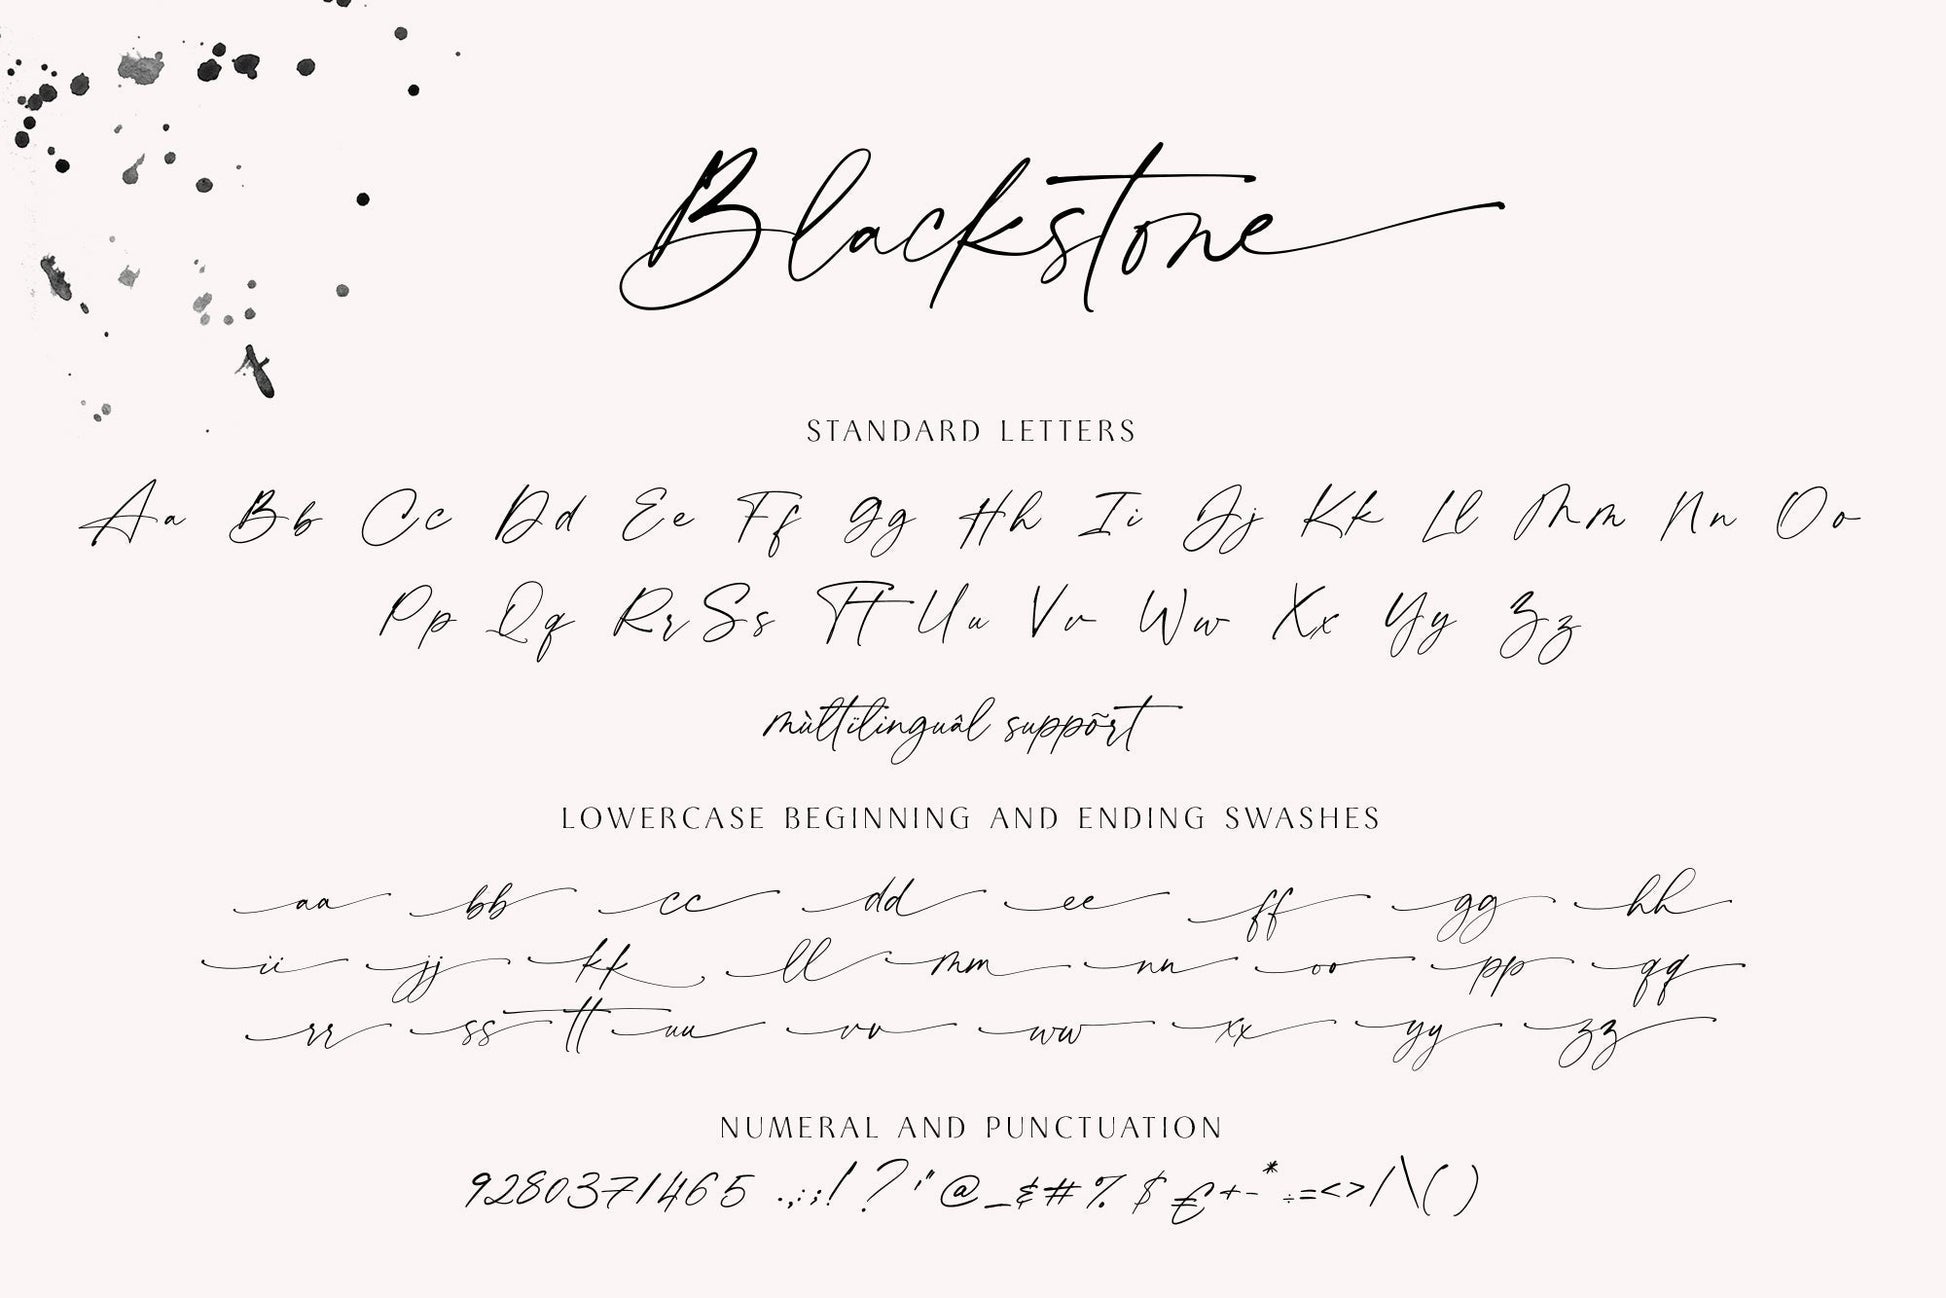 Blackstone
STANDARD LETTERS
Aa Bb Cc Dd Ee Ff Gg Hh Ii Jj Kk Ll Mm Nn Oo
Pp Qq Rr Ss Tt Uu Vv Ww Xx Yy Zz
mùltïlinguâl suppõrt
LOWERCASE BEGINNING AND ENDING SWASHES
aa bb cc dd ee ff gg hh
ii jj kk ll mm nn oo pp qq
rr ss tt uu vv ww xx yy zz
NUMERAL AND PUNCTUATION
9280371465 .,:;! ? '" @_&#% $ €+-*÷=<>/\( )